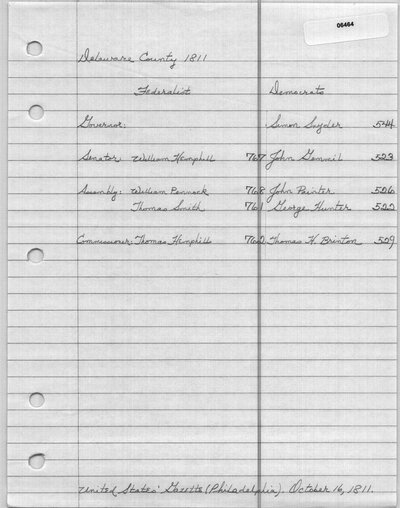 06464
Delaware County 1811
Federalist Democrats
Governor: Simon Snyder 544
Senator William Hemphill 767 John Gemmil 523
Assembly: William Pennock 768 John Painter 526
Thomas Smith 761 George Hunter 522
Commissioner: Thomas Hemphill 762 Thomas H. Brinton 529
United States' Gazette (Philadelphia). October 16, 1811.